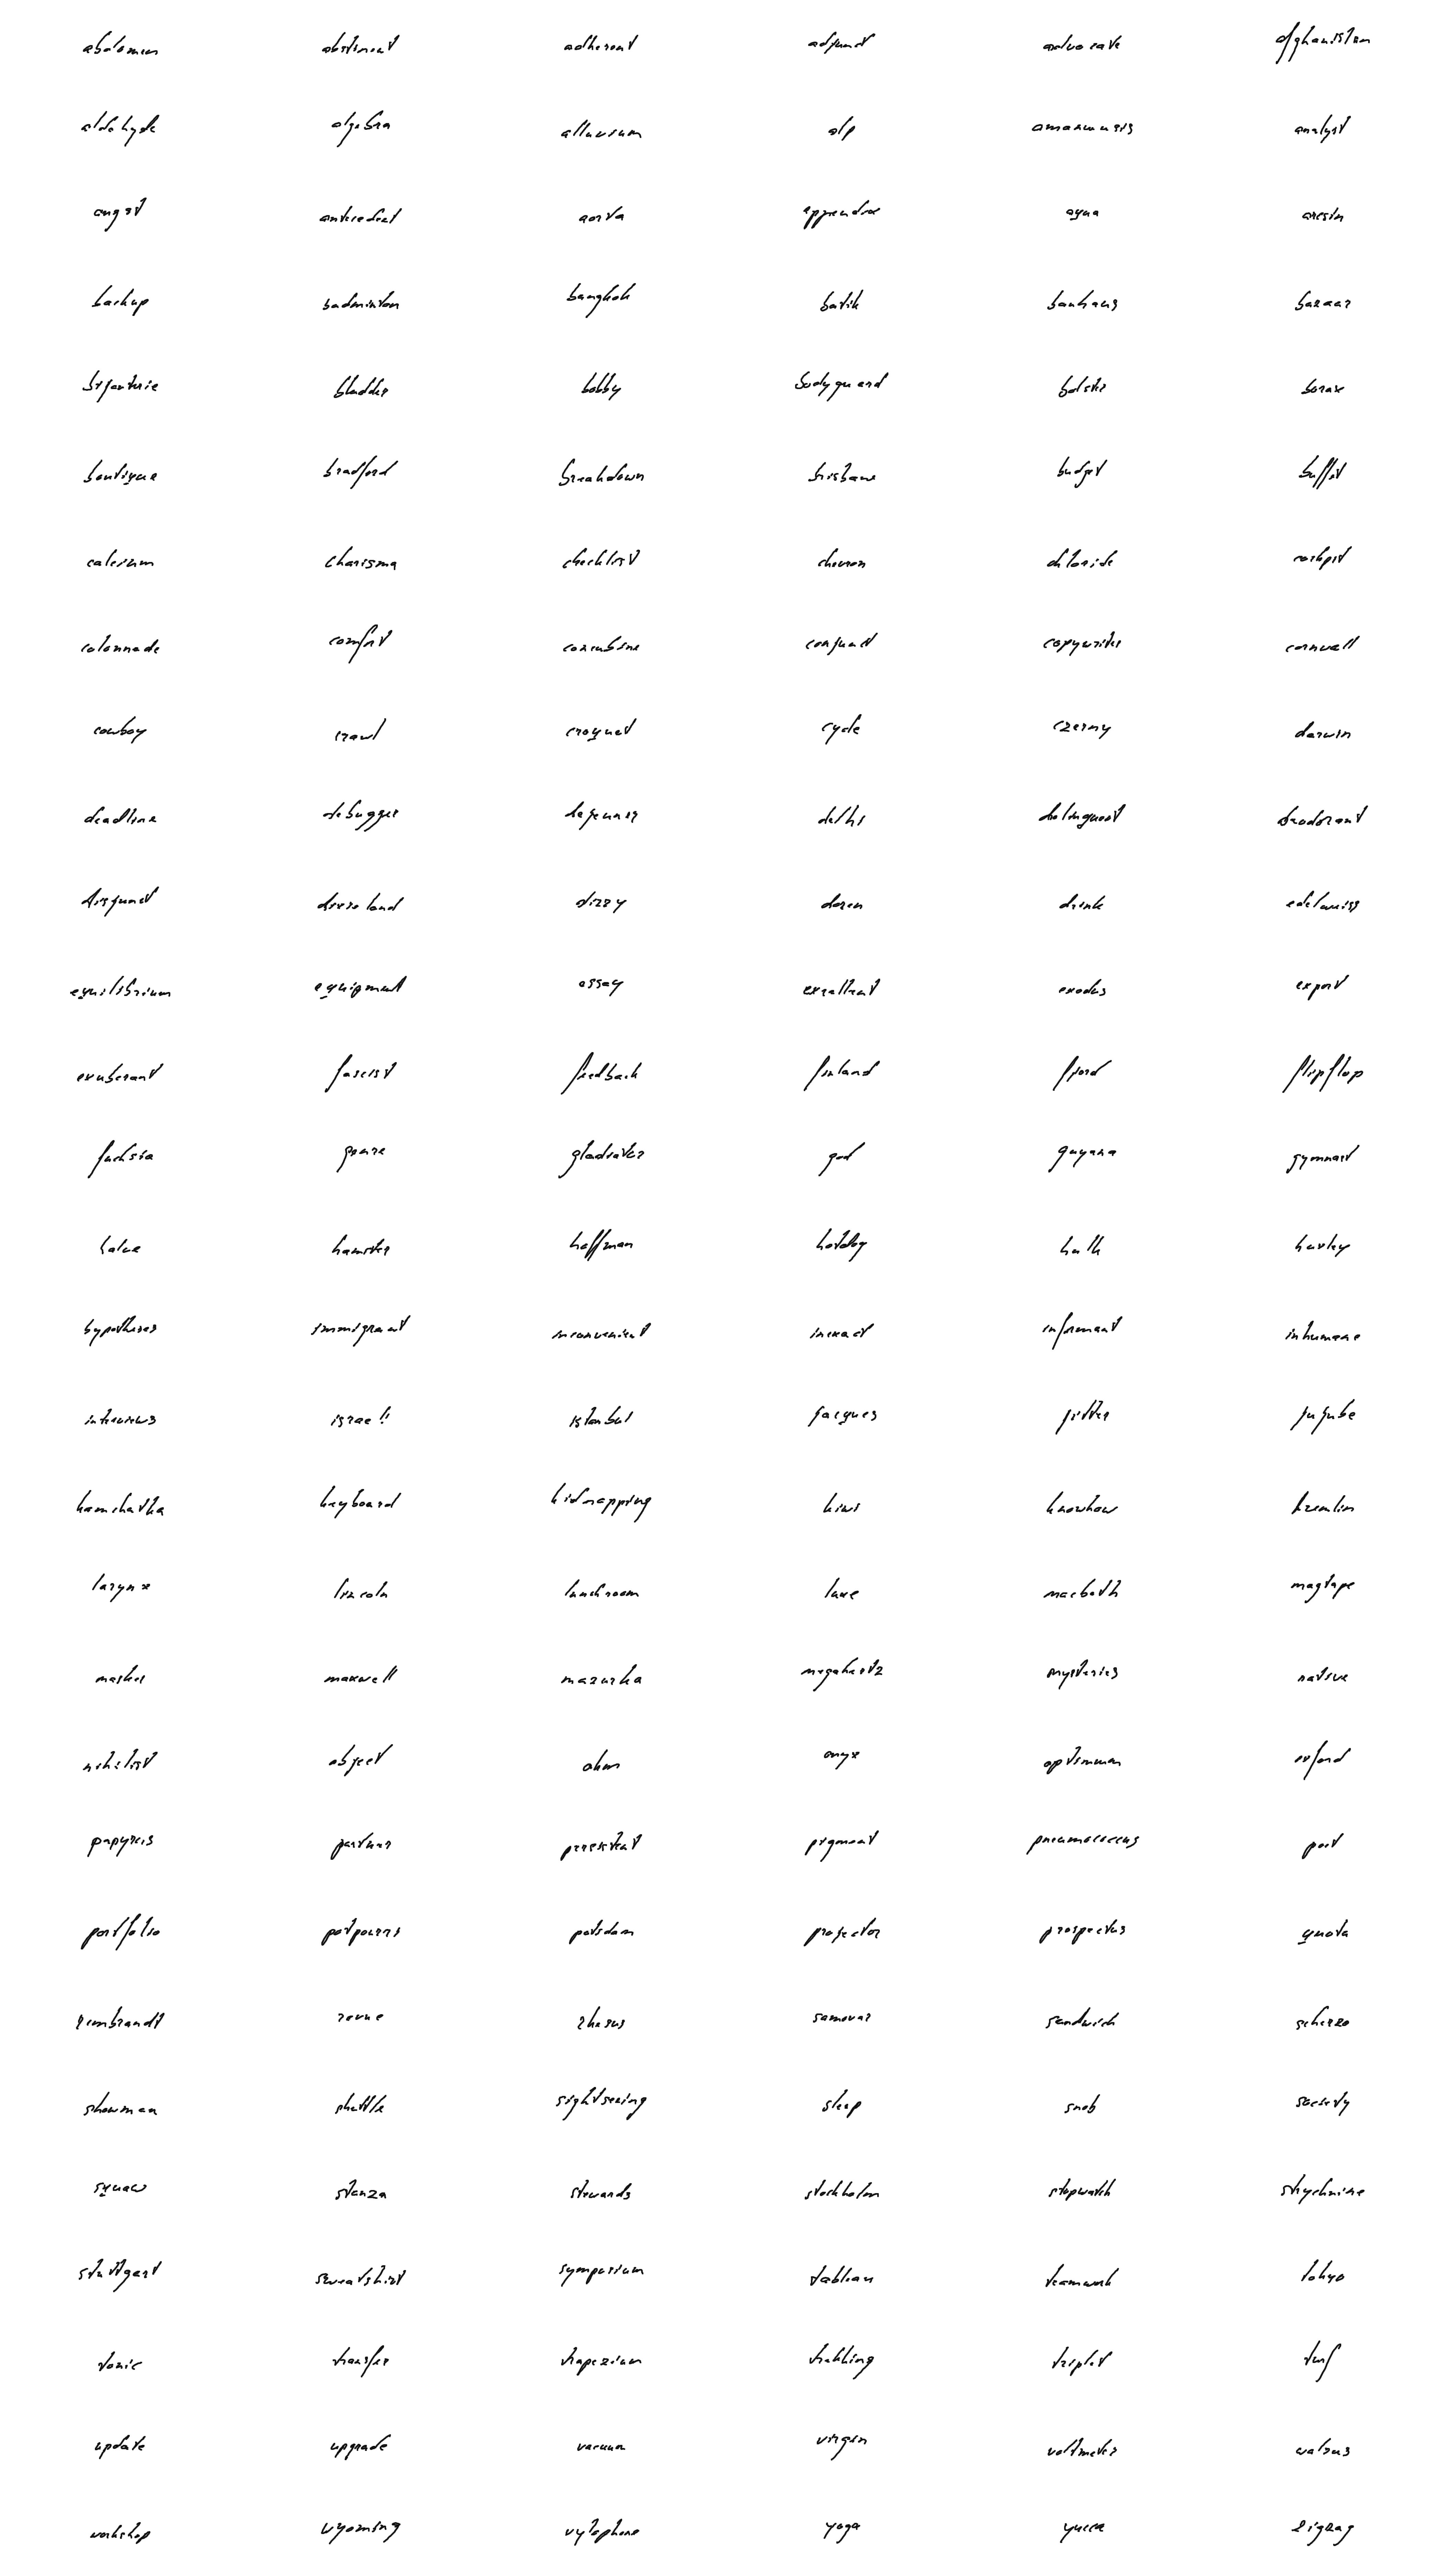 abdomen abstinent adherent adjunct advocate afghanistan
aldehyde algebra alluvium alp amanuensis analyst
angst antecedent aorta appendix aqua arcsin
backup badminton bangkok batik bauhaus bazaar
bladder bobby bodyguard bolster borax
boutique bradford breakdown brisbane budget buffet
calcium charisma checklist chevron chloride cockpit
colonnade comfort concubine conjunct copywriter cornwall
cowboy crawl croquet cycle czerny darwin
deadline debugger delhi delinquent deodorant
disjunct dixieland dizzy dozen drink edelweiss
equilibrium equipment essay excellent exodus export
exuberant fascist feedback finland fjord flipflop
fuchsia genre gladiator god guyana gymnast
halve hamster hoffman hotdog hulk huxley
hypotheses immigrant inconvenient inexact informant inhumane
interviews israel!! istanbul jacques jitter jujube
kamchatka keyboard kidnapping kiwi knowhow kremlin
larynx lincoln lunchroom luxe macbeth magtape
maxwell mazurka megahertz mysteries native
nihilist object ohm onyx optimum oxford
papyrus partner persistent pigment pneumococcus port
portfolio potpourri potsdam projector prospectus quota
rembrandt revue rhesus samovar sandwich scherzo
showman shuttle sightseeing sleep snob society
squaw stanza stewards stockholm stopwatch strychnine
stuttgart sweatshirt symposium tableau teamwork tokyo
tonic transfer trapezium trekking triplet turf
update upgrade vacuum virgin voltmeter walrus
workshop wyoming xylophone yoga yucca zigzag